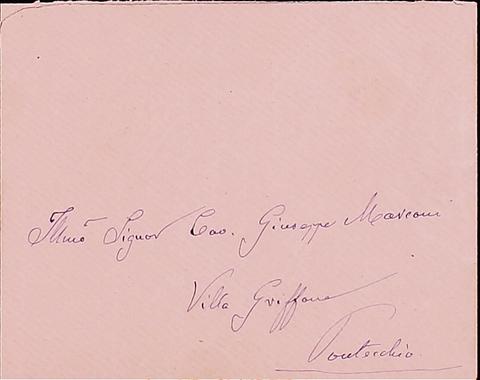 Illmo Signor Cav. Giuseppe Marconi
Villa Griffone
Pontecchio